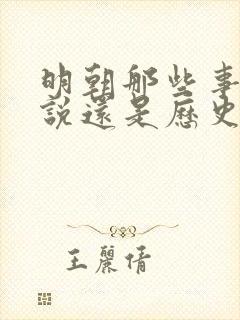 明朝那些事
說還是歷史
王麗倩